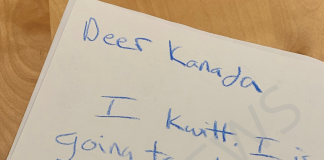 Deer Kanada
I Kwitt. I is
going to